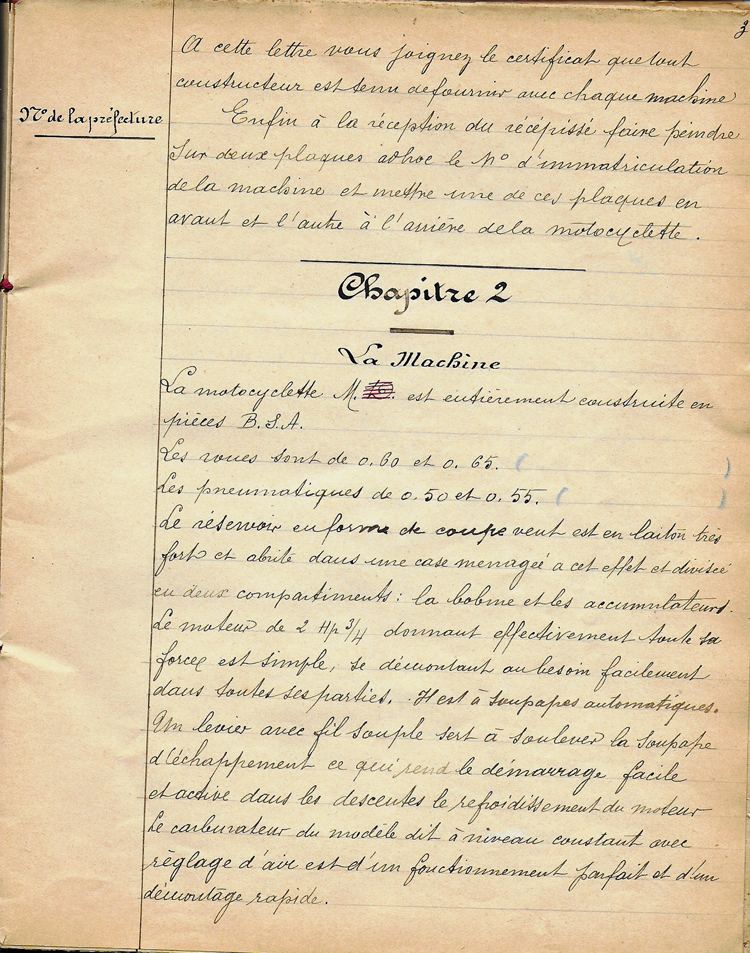 3
A cette lettre vous joignez le certificat que tout
constructeur est tenu de fournir avec chaque machine
N° de la préfecture
Enfin à la réception du récépissé faire peindre
sur deux plaques adhoc le N° d'immatriculation
de la machine et mettre une de ces plaques en
avant et l'autre à l'arrière de la motocyclette.
Chapitre 2
La Machine
La motocyclette M. est entièrement construite en
pièces B.S.A.
Les roues sont de 0.60 et 0.65. ( )
Les pneumatiques de 0.50 et 0.55. ( )
Le réservoir en forme de coupe vent est en laiton très
fort et abrité dans une case menagée a cet effet et divisée
en deux compartiments: la bobine et les accumulateurs.
Le moteur de 2 Hp 3/4 donnant effectivement toute sa
force est simple, se démontant au besoin facilement
dans toutes ses parties. Il est à soupapes automatiques.
Un levier avec fil souple sert à soulever la soupape
d'échappement ce qui rend le démarrage facile
et active dans les descentes le refroidissement du moteur
Le carburateur du modèle dit à niveau constant avec
règlage d'air est d'un fonctionnement parfait et d'un
démontage rapide.